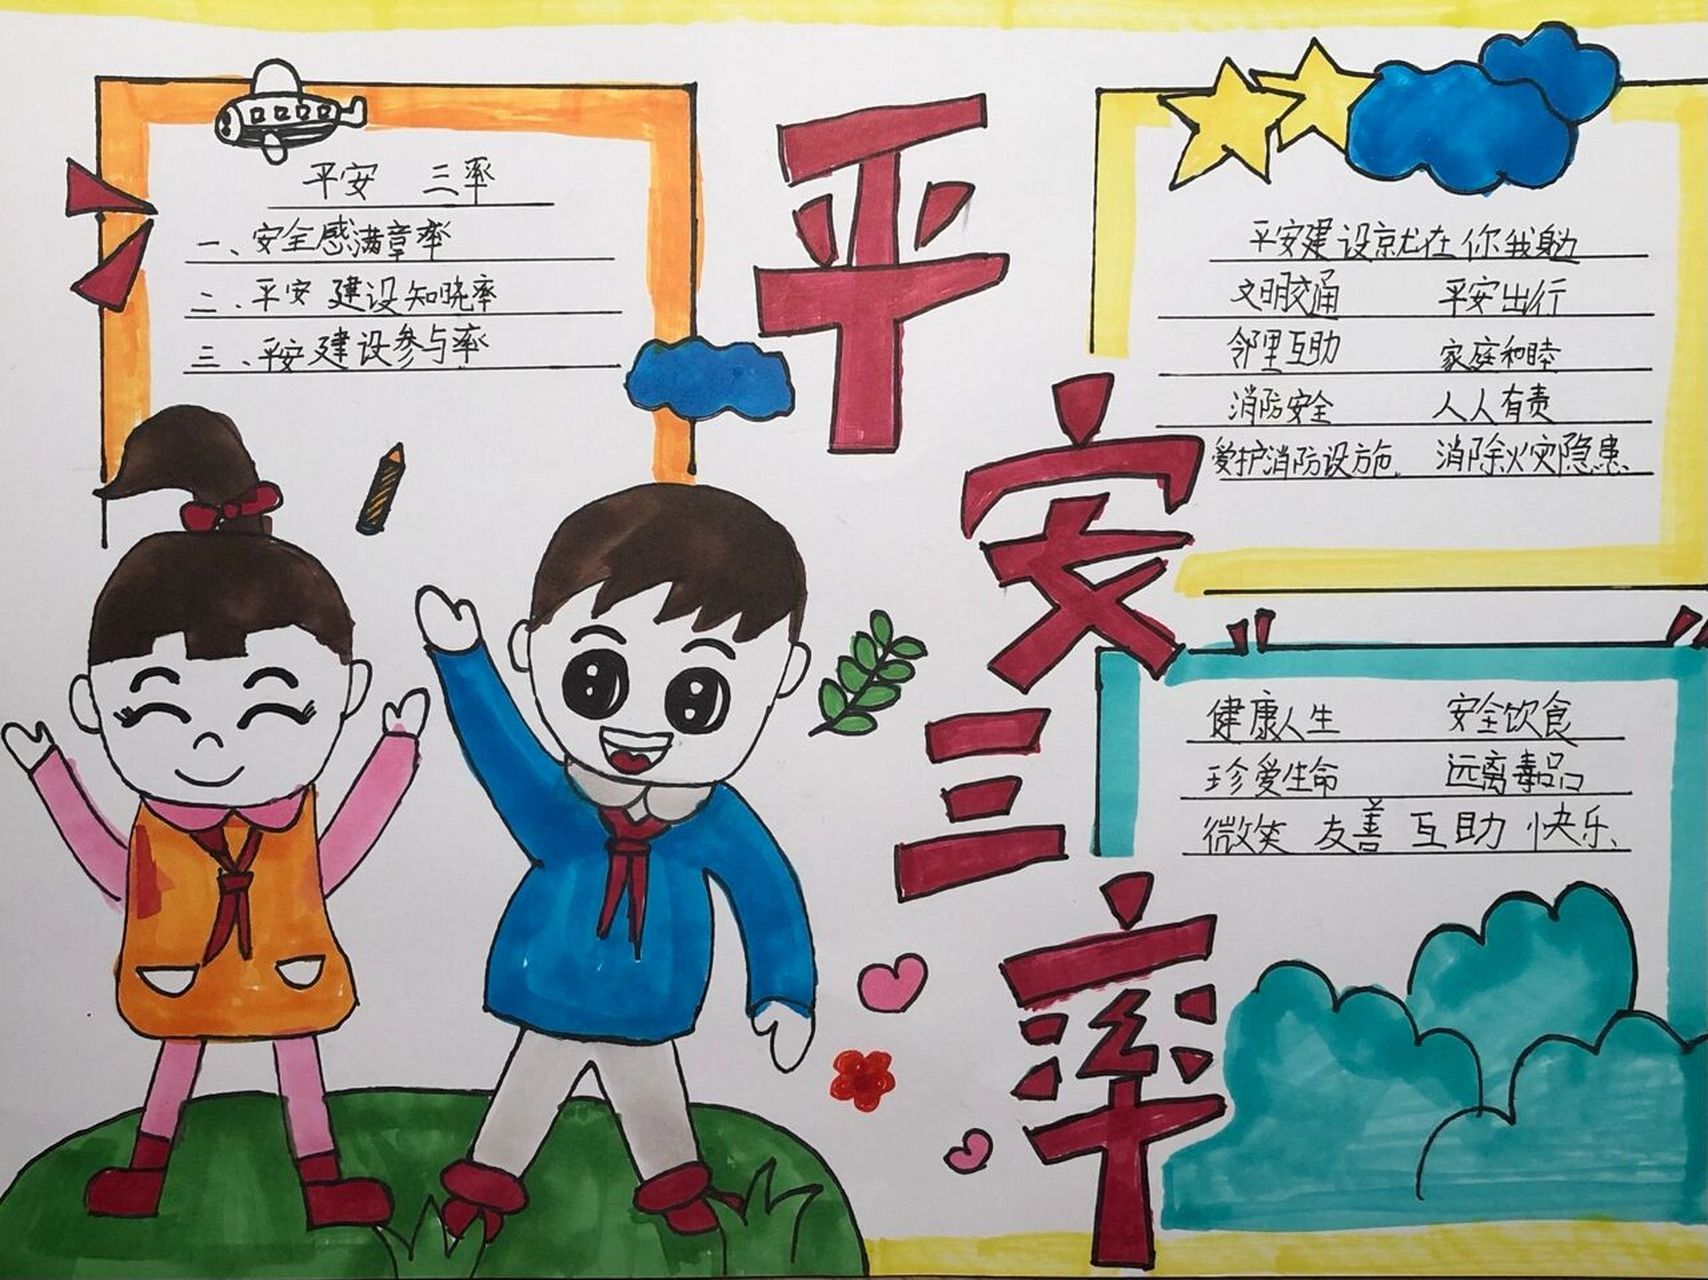 平安 三率
一、安全感满意率
二、平安 建设知晓率
三、平安建设参与率
平
安
三
率
平安建设就在你我身边
文明交通 平安出行
邻里互助 家庭和睦
消防安全 人人有责
爱护消防设施 消除火灾隐患、
健康人生 安全饮食
珍爱生命 远离毒品
微笑 友善 互助 快乐、